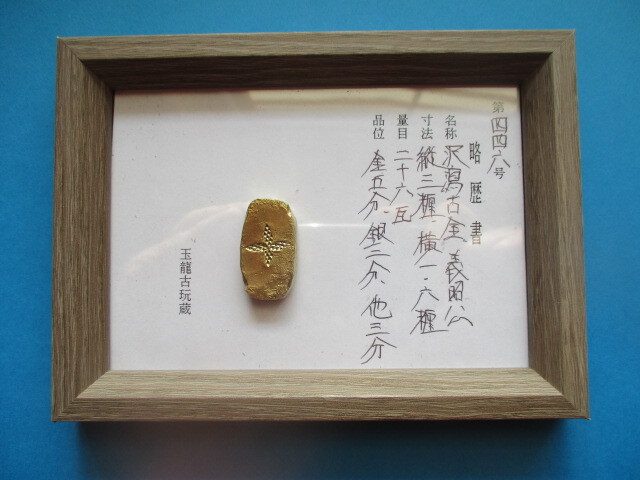 第四四六号
略歴書
名称 沢潟古金 義昭公
寸法 縦三糎、横一・六糎
量目 二十六瓦
品位 金五分、銀二分、他三分
玉龍古玩蔵